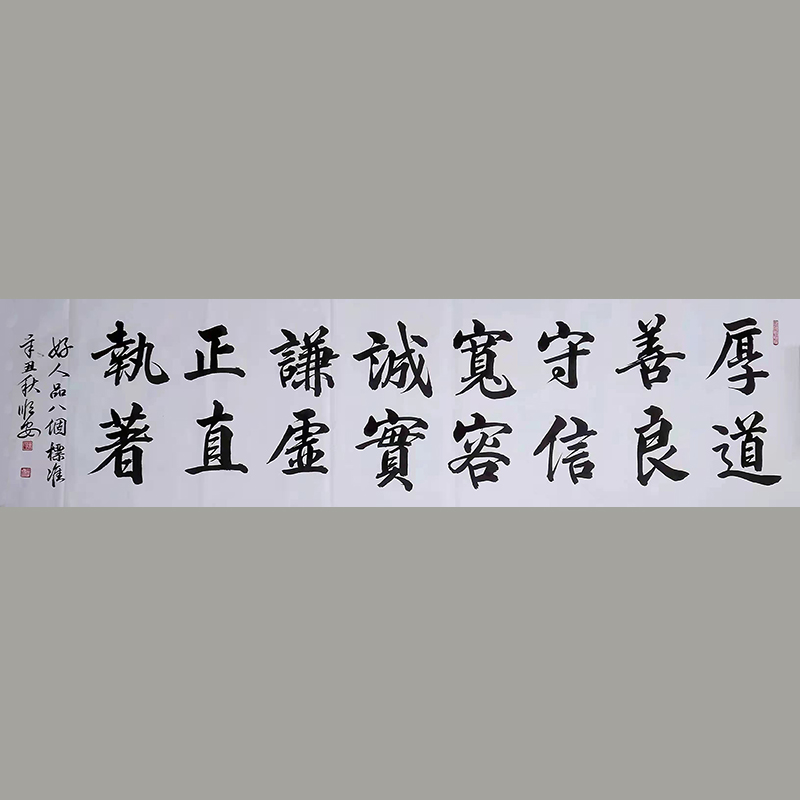 厚道
善良
守信
寬容
誠實
謙虛
正直
執著
好人品八個標准
辛丑秋順安